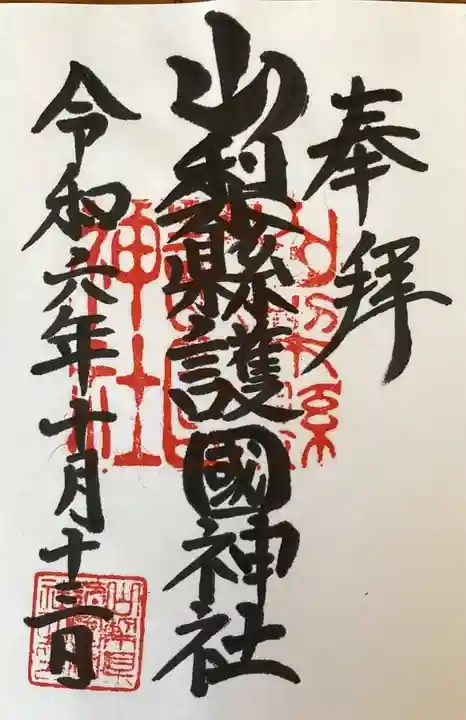 奉拝
山梨縣護國神社
令和六年十月十三日